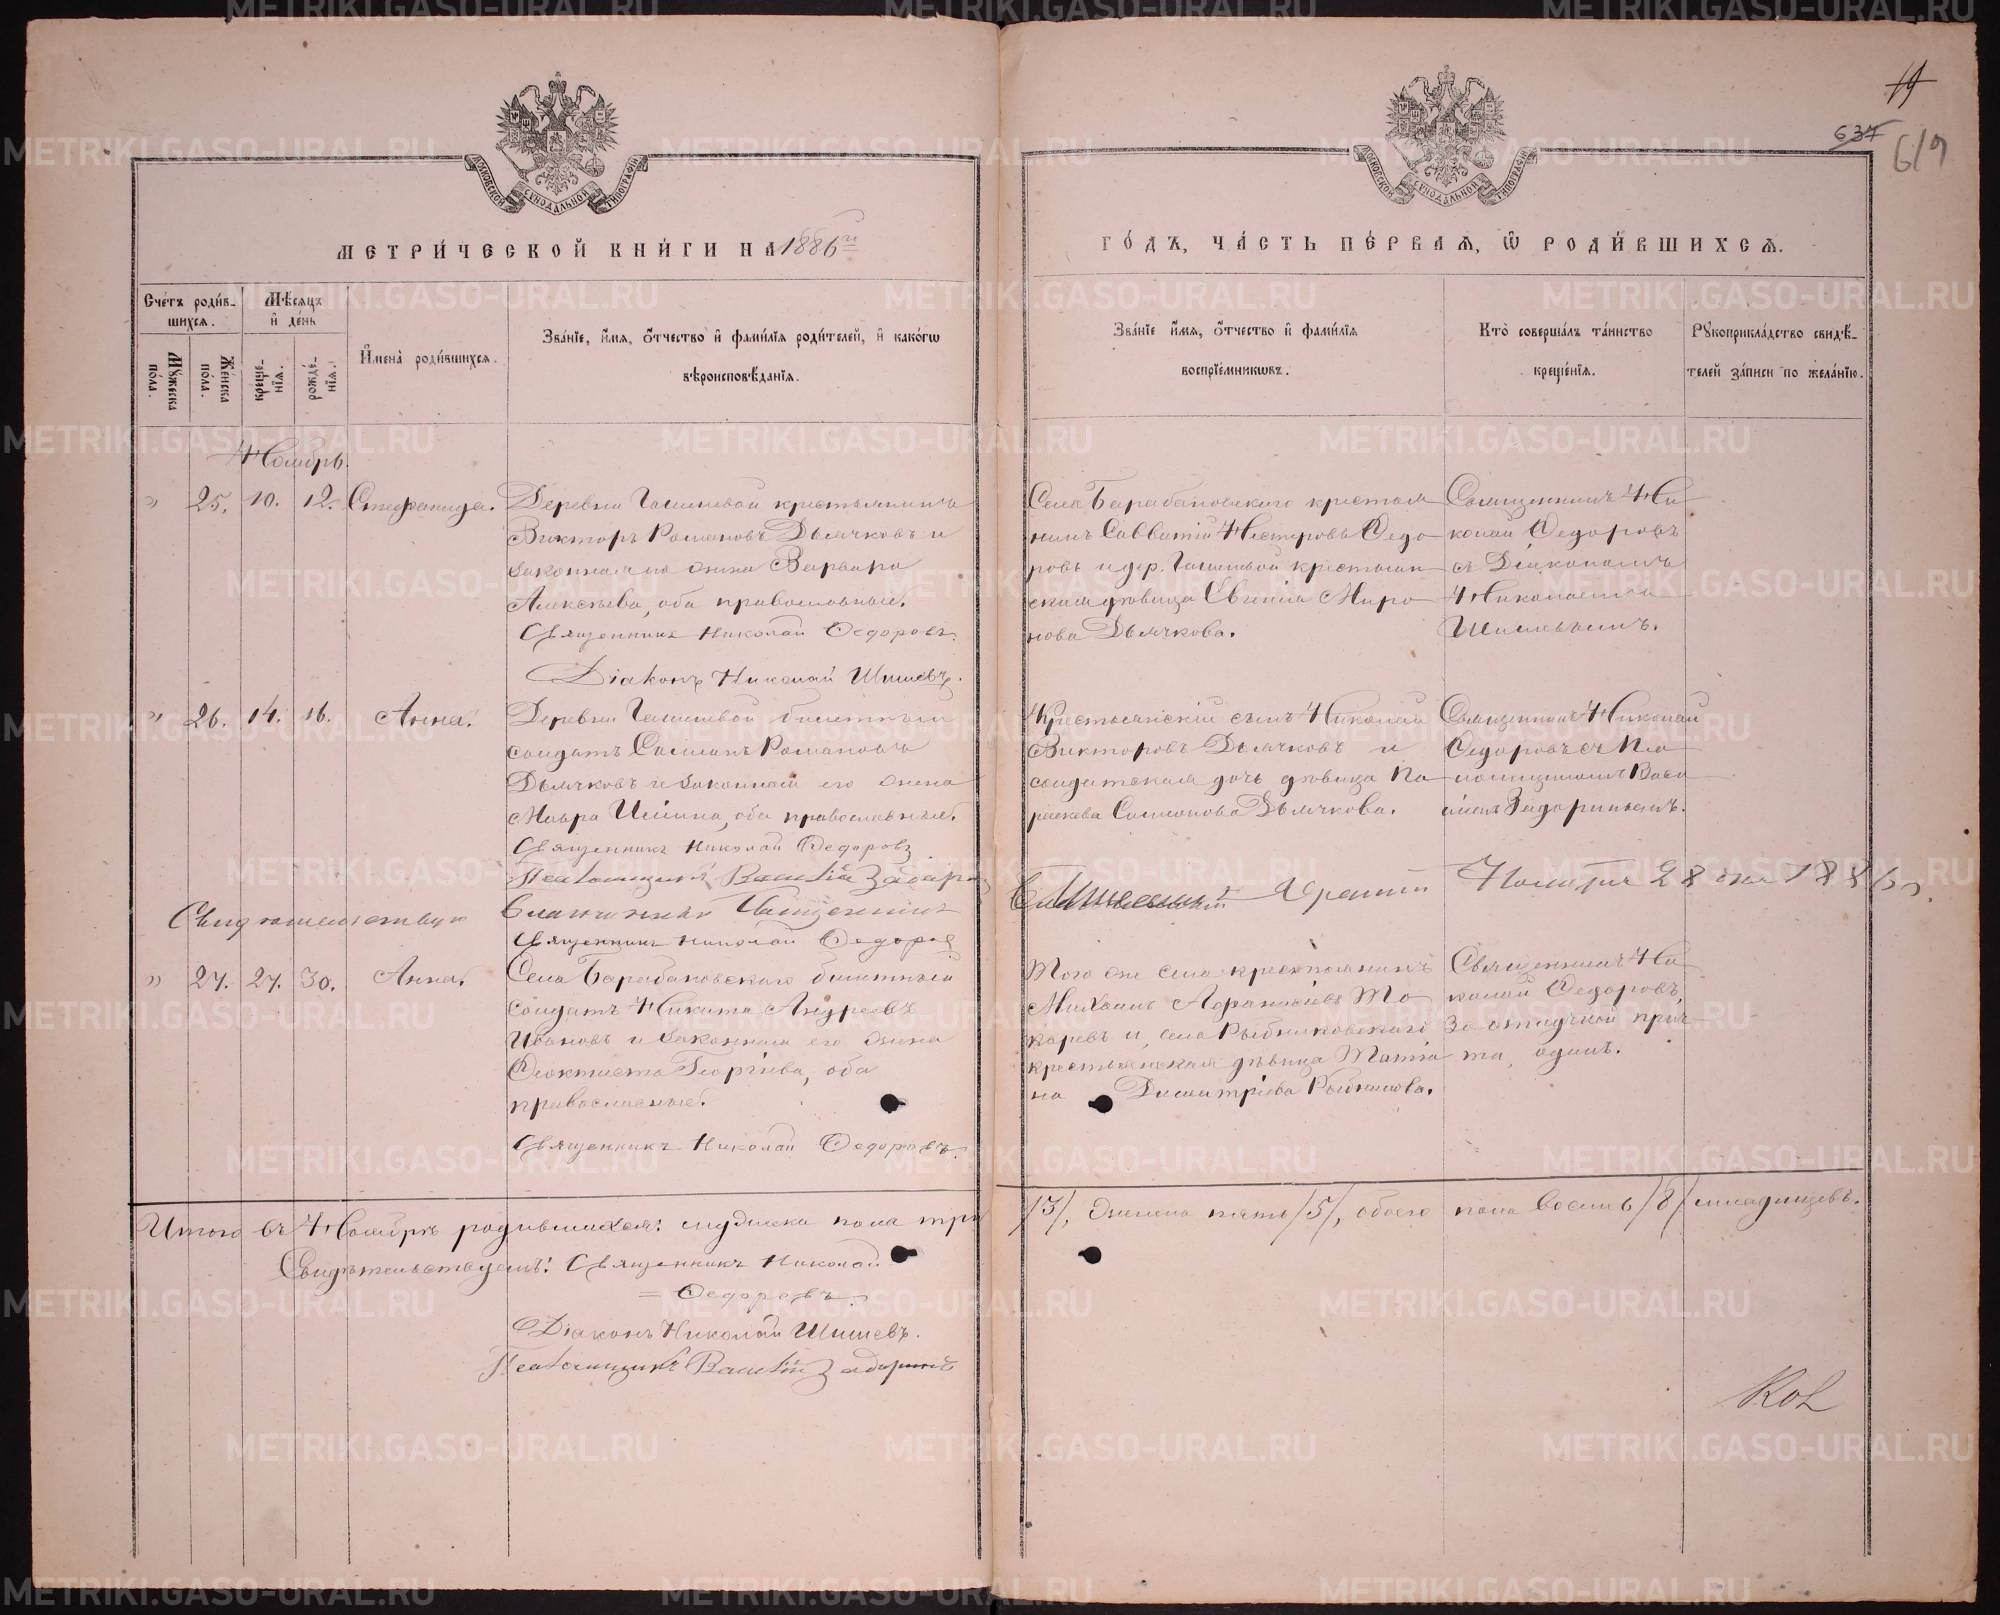 19
637
619
МОСКОВСКОЙ СУНОДАЛЬНОЙ ТИПОГРАФІИ
МОСКОВСКОЙ СУНОДАЛЬНОЙ ТИПОГРАФІИ
МЕТРИ́ЧЕСКОЙ КНИ́ГИ НА 1886й
ГО́ДЪ, ЧА́СТЬ ПЕ́РВАЯ, Ѿ РОДИ́ВШИХСЯ.
Сче́тъ роди́в-
шихся.
Мѣ́сяцъ
и҆ де́нь
Мꙋжеска
пола.
Же́нска
по́ла.
рожде́-
нія.
креще́-
нія.
И҆мена̀ роди́вшихся.
Зва́ніе, и҆́мя, ѻ҆́тчество и҆ фами́лія роди́телей, и҆ како́гѡ
вѣроисповѣ́данія.
Зва́ніе и҆́мя, ѻ҆́тчество и҆ фами́лія
воспріе́мниковъ.
Кто̀ соверша́лъ та́инство
креще́нія.
Рꙋкоприкла́дство свидѣ́-
телей за́писи по жела́нію.
Ноябрь.
" 25. 10. 12. Стефанида.
Деревни Гашевой крестьянинъ
Викторъ Романовъ Дьячковъ и
законная его жена Варвара
Алексѣева, оба православные.
Священникъ Николай Ѳедоровъ.
Діаконъ Николай Шишевъ.
Села Барабановскаго крестья
нинъ Савватій Нестеровъ Ѳедо
ровъ и дер. Гашевой крестьян
ская дѣвица Евгенія Миро
нова Дьячкова.
Священникъ Ни
колай Ѳедоровъ
съ Діакономъ
Николаемъ
Шишевымъ.
" 26. 14. 16. Анна.
Деревни Гашевой билетный
солдатъ Симонъ Романовъ
Дьячковъ и законная его жена
Мавра Ильина, оба православные.
Священникъ Николай Ѳедоровъ
Псаломщикъ Василій Задорин
Крестьянскій сынъ Николай
Викторовъ Дьячковъ и
солдатская дочь дѣвица Па
раскева Симонова Дьячкова.
Священникъ Николай
Ѳедоровъ съ Пса
ломщикомъ Васи
ліемъ Задоринымъ.
Свидѣтельствую Священникъ
Ноября 28 дня 1886 г.
Священникъ Николай Ѳедоров
" 27. 27. 30. Анна.
Села Барабановскаго билетный
солдатъ Никита Андреевъ
Ивановъ и законная его жена
Ѳеоктиста Георгіева, оба
православные.
Священникъ Николай Ѳедоровъ.
Того же села крестьянинъ
Михаилъ Аѳанасіевъ То
каревъ и, села Рыбниковскаго
крестьянская дѣвица Татіа
на Димитріева Рыбникова.
Священникъ Ни
колай Ѳедоровъ,
за отлучкой прич
та, одинъ.
Итого въ Ноябрѣ родившихся: мужеска пола три
/3/, женска пять /5/, обоего пола восемь /8/ младенцевъ.
Свидѣтельствуемъ: Священникъ Николай
= Ѳедоровъ.
Діаконъ Николай Шишевъ.
Псаломщикъ Василій Задоринъ
METRIKI.GASO-URAL.RU